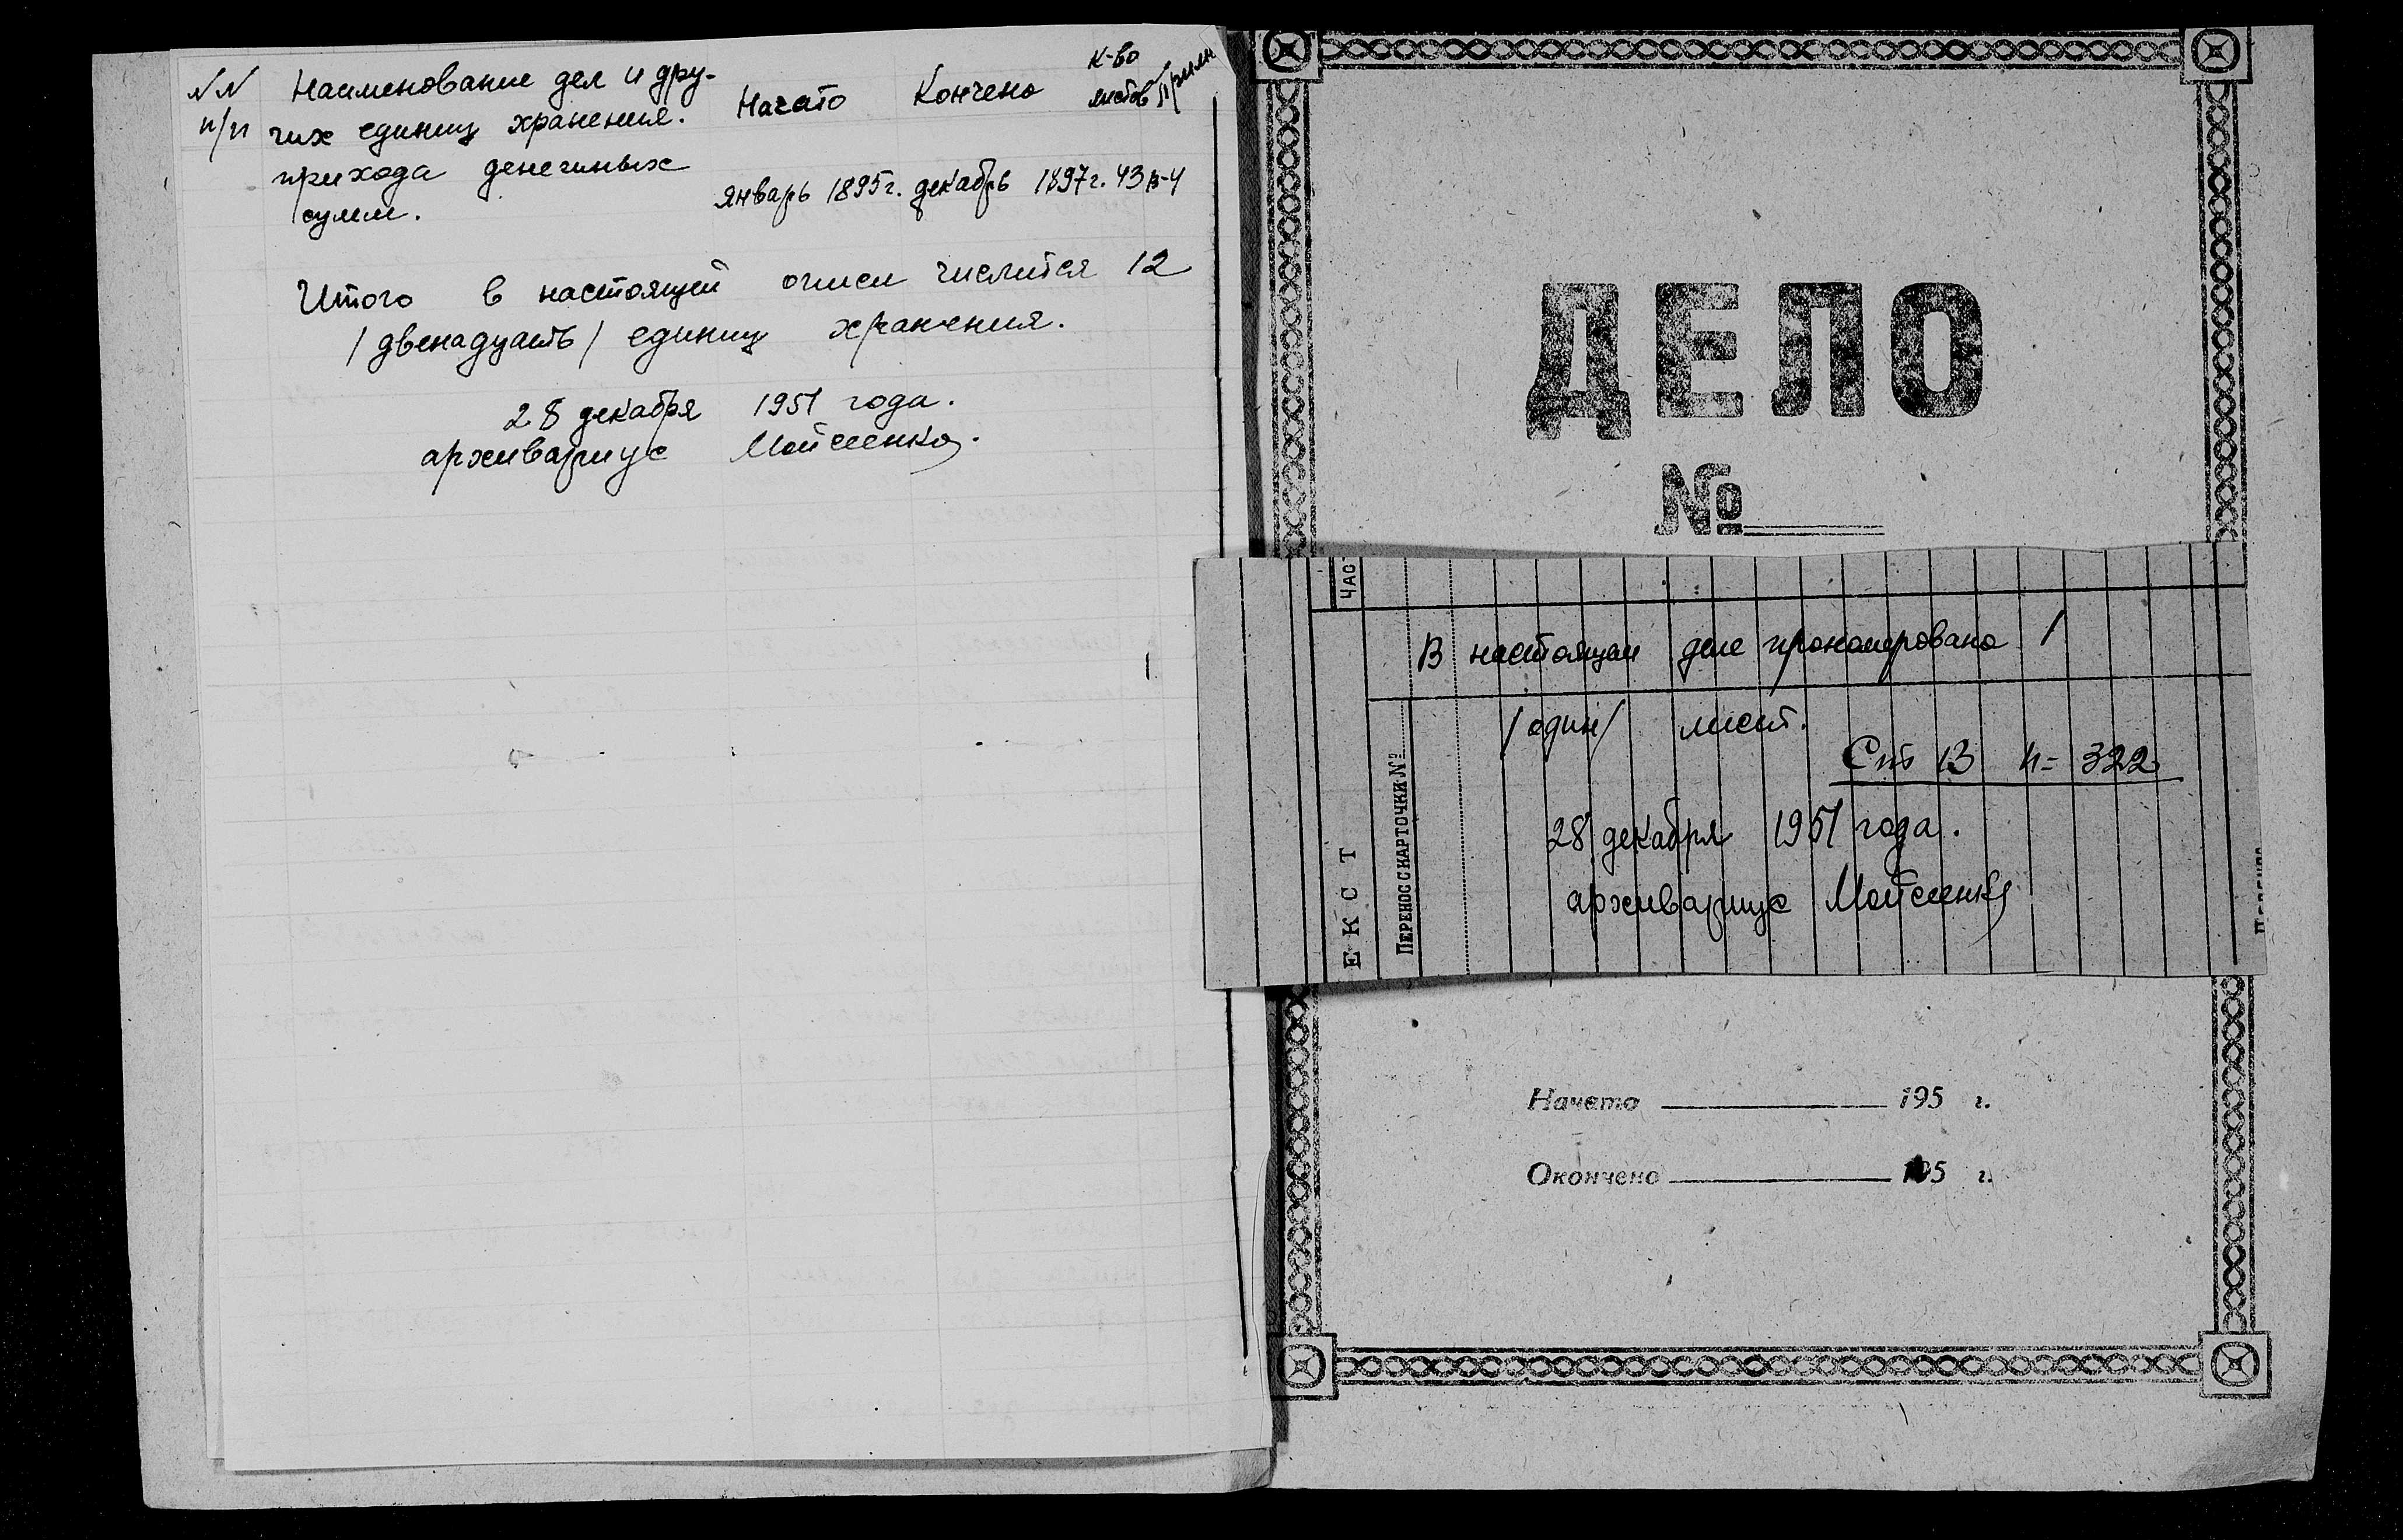 NN Наименование дел и дру- Начато Кончено к-во листов Прим
п/п гих единиц хранения.
прихода денежных
сумм. январь 1895 г. декабрь 1897 г. 43
Итого в настоящей описи числится 12
/двенадцать/ единиц хранения.
28 декабря 1951 года.
архивариус
ДЕЛО
№
ЧАС
В настоящем деле пронумеровано 1
/один/ лист.
13 322
28 декабря 1951 года.
архивариус
ЕКСТ
ПЕРЕНОС С КАРТОЧКИ №
Начато 195 г.
Окончено 195 г.